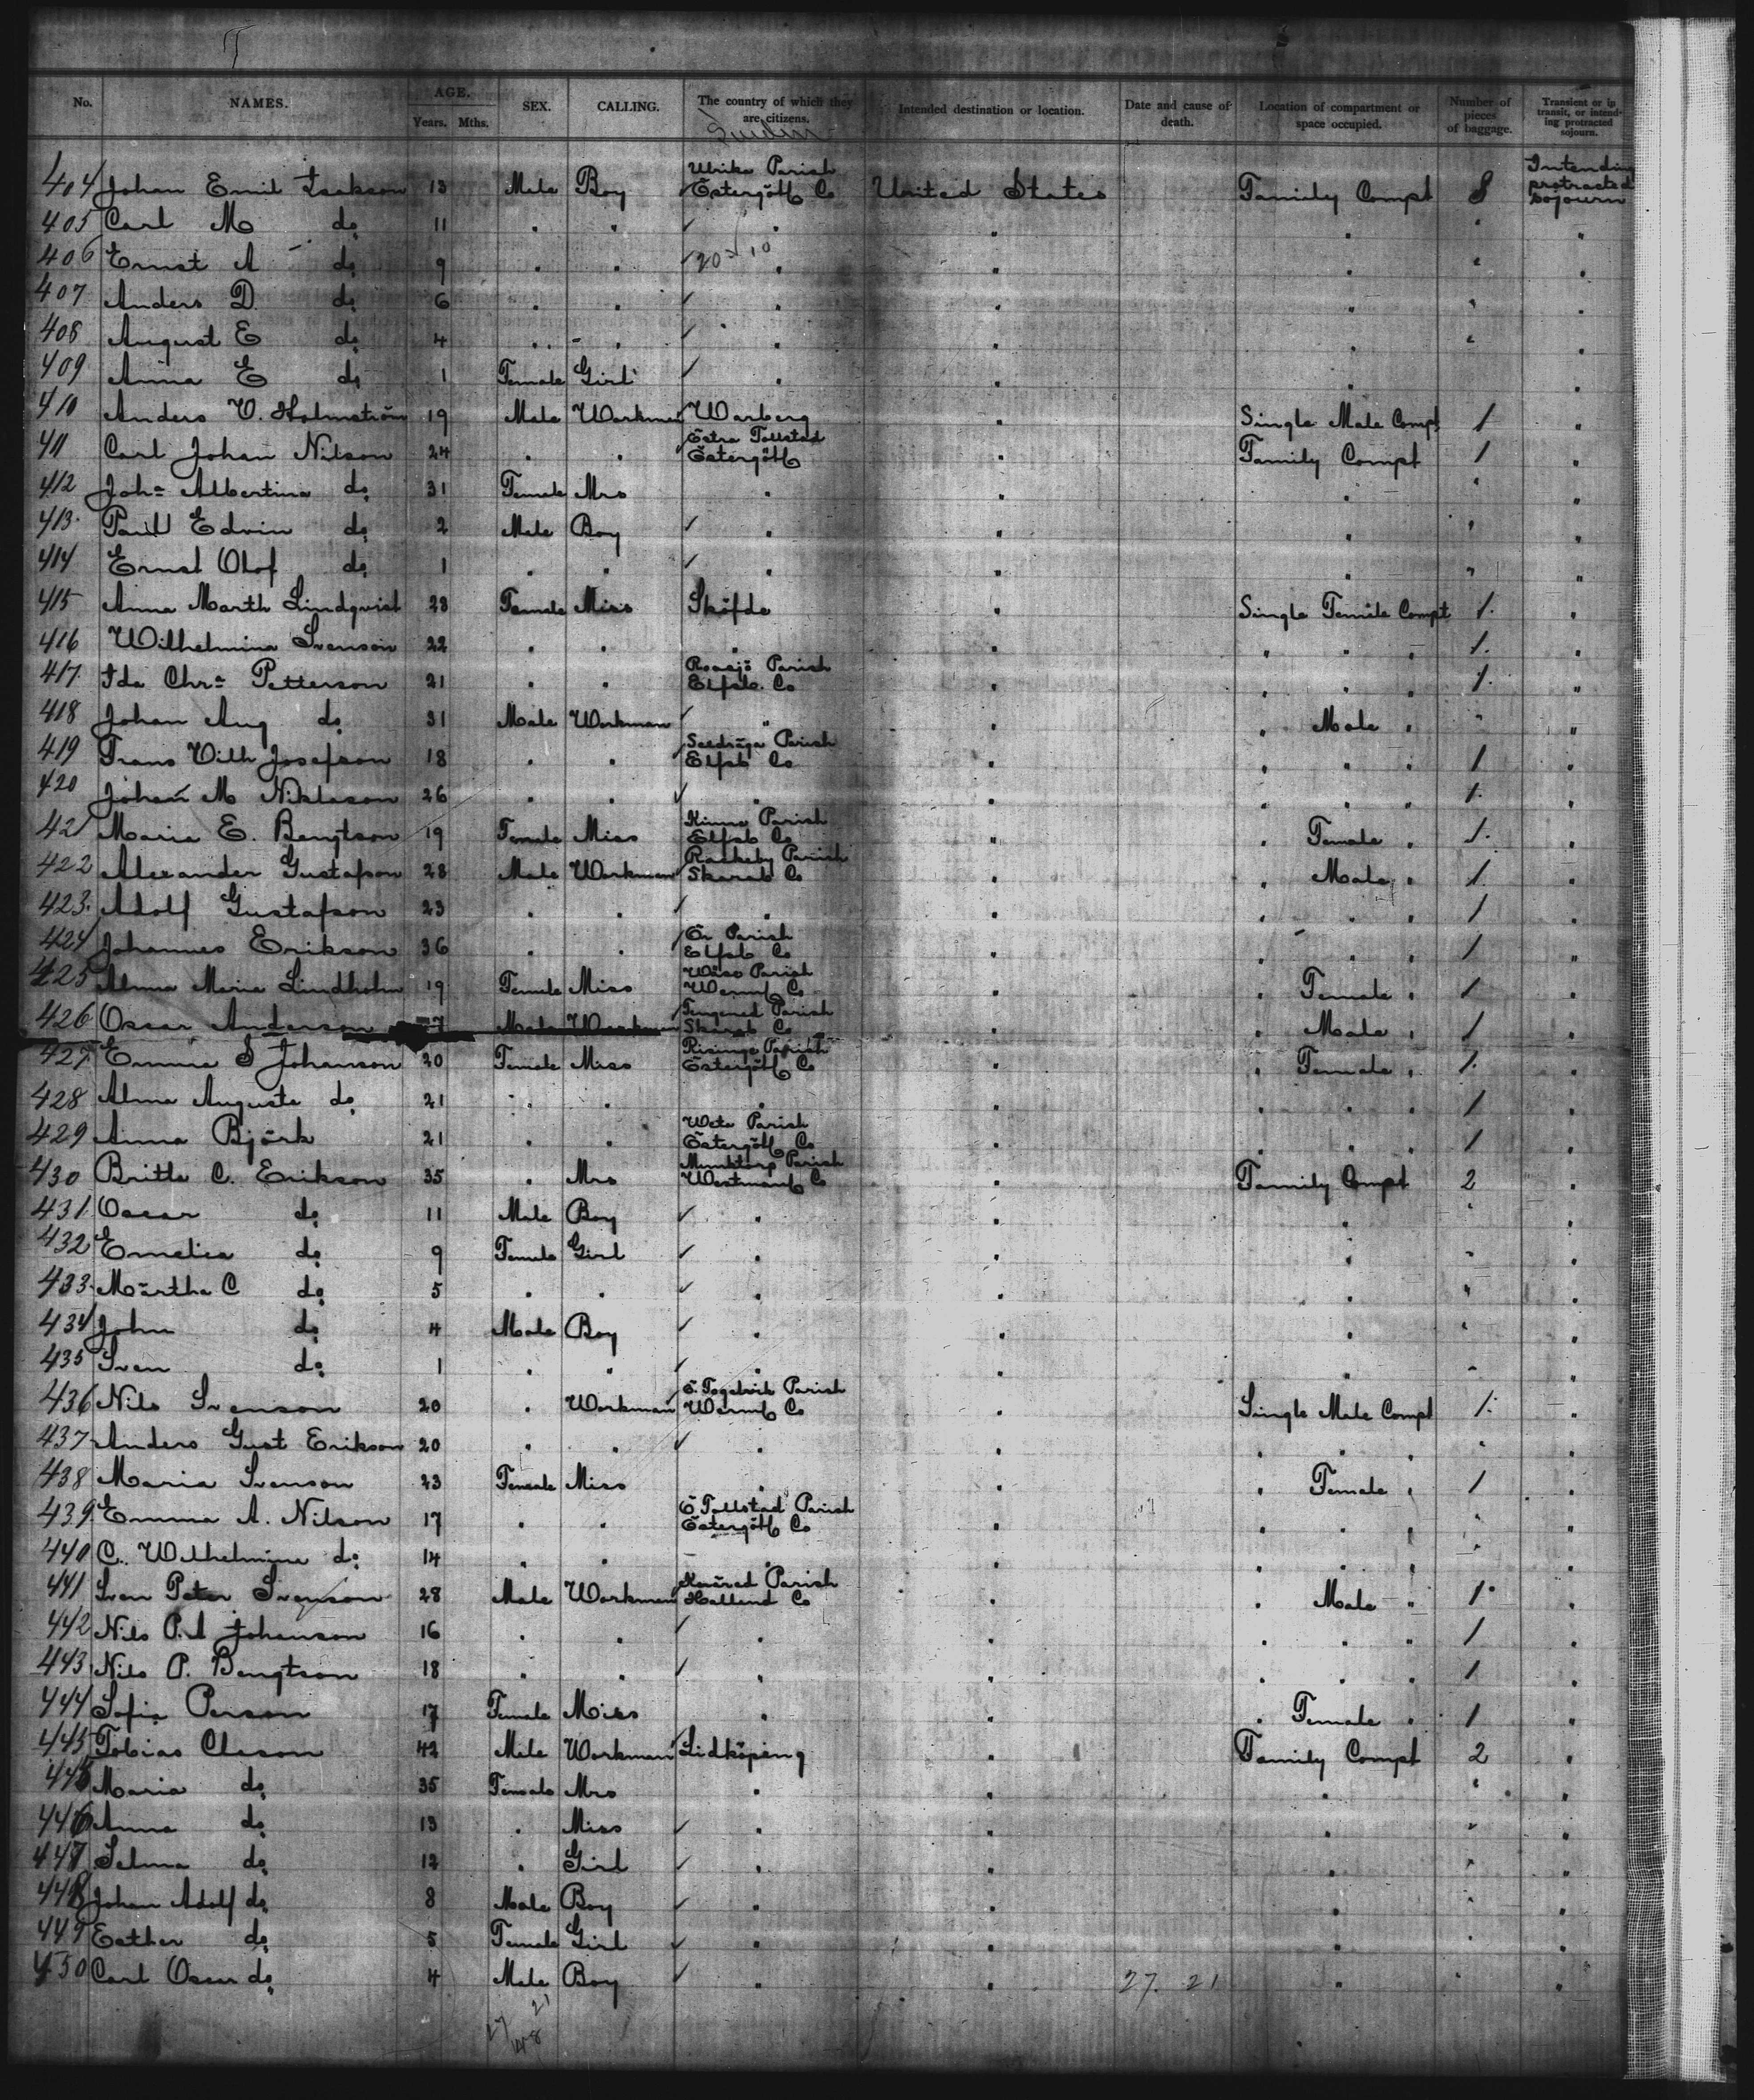 No. NAMES. AGE. Years. Mths. SEX. CALLING. The country of which they are citizens. Intended destination or location. Date and cause of death. Location of compartment or space occupied. Number of pieces of baggage. Transient or in transit, or intending protracted sojourn.
Sweden
404 Johan Emil Isakson 13 Male Boy Ulrika Parish Östergötl Co United States Family Compt 8 Intending protracted sojourn
405 Carl M do 11 " " " " " " "
406 Ernst A do 9 " " 20 × 10 " " " " "
407 Anders D. do 6 " " " " " " "
408 August E do 4 " " " " " " "
409 Anna E do 1 Female Girl " " " "
410 Anders V. Holmström 19 Male Workman Warberg " Single Male Compt 1 "
411 Carl Johan Nilson 24 " " Östra Tollstad Östergötl " Family Compt 1 "
412 Joh= Albertina do 31 Female Mrs " " " " "
413 Paul Edwin do 2 Male Boy " " " " "
414 Ernst Olof do 1 " " " " " " "
415 Anna Marth Lindqvist 23 Female Miss Sköfde " Single Female Compt 1. "
416 Wilhelmina Svenson 22 " " " " " " " 1. "
417. Ida Chr= Petterson 21 " " Parish Elfsb. Co " " " " 1. "
418 Johan Aug do 31 Male Workman " " " Male " " "
419 Frans Vilh Josefson 18 " " Parish Elfsb Co " " " " 1 "
420 Johan M Niklason 26 " " " " " " " 1. "
421 Maria E. Bengtson 19 Female Miss Kinna Parish Elfsb Co " " Female " 1. "
422 Alexander Gustafson 28 Male Workman Rackeby Parish Skarab Co " " Male " 1 "
423. Adolf Gustafson 23 " " " " " " " 1 "
424 Johannes Erikson 36 " " Ör Parish Elfsb Co " " " " 1 "
425 Alma Maria Lindholm 19 Female Miss Parish Werml Co " " Female " 1 "
426 Oscar Anderson Male Workman Tengened Parish Skarab Co " " Male " 1 "
427 Emma S Johanson 20 Female Miss Risinge Parish Östergötl Co " " Female " 1. "
428 Alma Augusta do 21 " " " " " " " 1 "
429 Anna Björk 21 " " Weta Parish Östergötl Co " " " " 1 "
430 Britta C. Erikson 35 " Mrs Munktorp Parish Westmanl Co " Family Compt 2 "
431 Oscar do 11 Male Boy " " " " "
432 Emelica do 9 Female Girl " " " " "
433. Märtha C do 5 " " " " " " "
434 John do 4 Male Boy " " " " "
435 Sven do 1 " " " " " " "
436 Nils Svenson 20 " Workman Ö. Parish Werml Co " Single Male Compt 1. "
437 Anders Gust Erikson 20 " " " " " " " " "
438 Maria Svenson 23 Female Miss " " " Female " 1 "
439 Emma A. Nilson 17 " " Ö Tollstad Parish Östergötl Co " " " " " "
440 C. Wilhelmina do 14 " " " " " " " " "
441 Sven Peter Svenson 28 Male Workman Knäred Parish Halland Co " " Male " 1 "
442 Nils P. A Johanson 16 " " " " " " " 1 "
443 Nils P. Bengtson 18 " " " " " " " 1 "
444 Sofia Person 17 Female Miss " " " Female " 1 "
445 Tobias Cleson 42 Male Workman Lidköping " Family Compt 2 "
445 Maria do 35 Female Mrs " " " " "
446 Anna do 13 " Miss " " " " "
447 Selma do 12 " Girl " " " " "
448 Johan Adolf do 8 Male Boy " " " " "
449 Esther do 5 Female Girl " " " " "
450 Carl Oscar do 4 Male Boy " " 27. 21 " " "
27 21
48